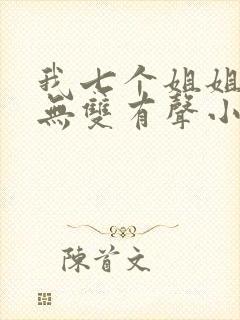 我七个姐姐
無雙有聲小
陳首文